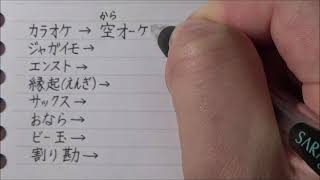 から
カラオケ→空オーケ
ジャガイモ→
エンスト→
縁起(えんぎ)→
サックス→
おなら→
ビー玉→
割り勘→
SARA